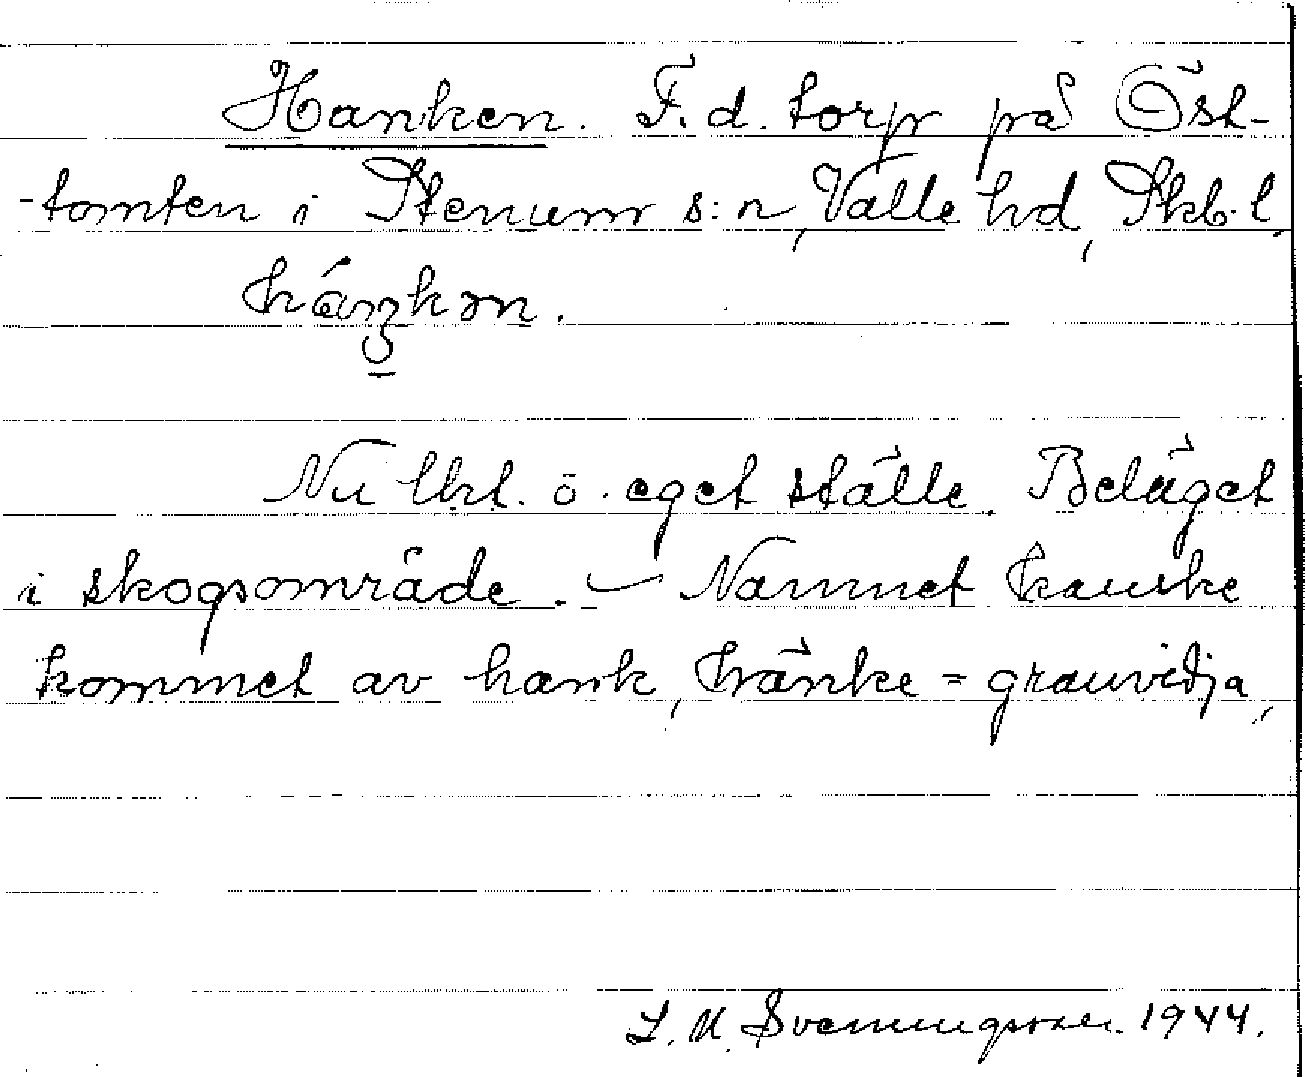 Hanken. F.d. torp på Öst-
-tomten i Stenum s:n, Valle hd, Skb. l.
Nu lht. o. eget ställe. Beläget
i skogsområde. – Namnet kanske
kommet av hank, hränke = granvidja,
S. M. Svenungsson. 1944.